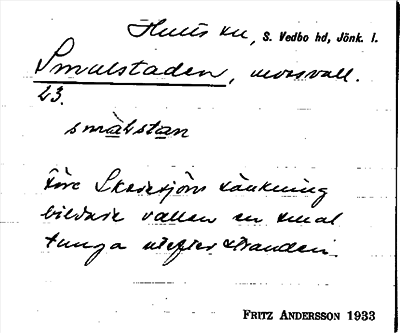 Hults sn, S. Vedbo hd, Jönk. l.
Smalstaden, mossvall.
23.
smàlstan
Före Skedesjöns sänkning
bildade vallen en smal
tunga utefter stranden.
FRITZ ANDERSSON 1933